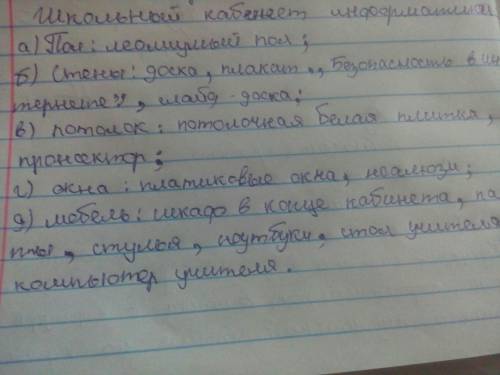 Школьный кабинет информатики
а) Пол: леолиумый пол;
б) Стены: доска, плакат „Безопасность в ин
тернете", слайд-доска;
в) потолок: потолочная белая плитка,
проноектор;
г) окна: платиковые окна, ноалюзи;
д) мебель: шкаф в конце кабинета, па
ты, стулья, ноутбуки, стол учителя
компьютер учителя.